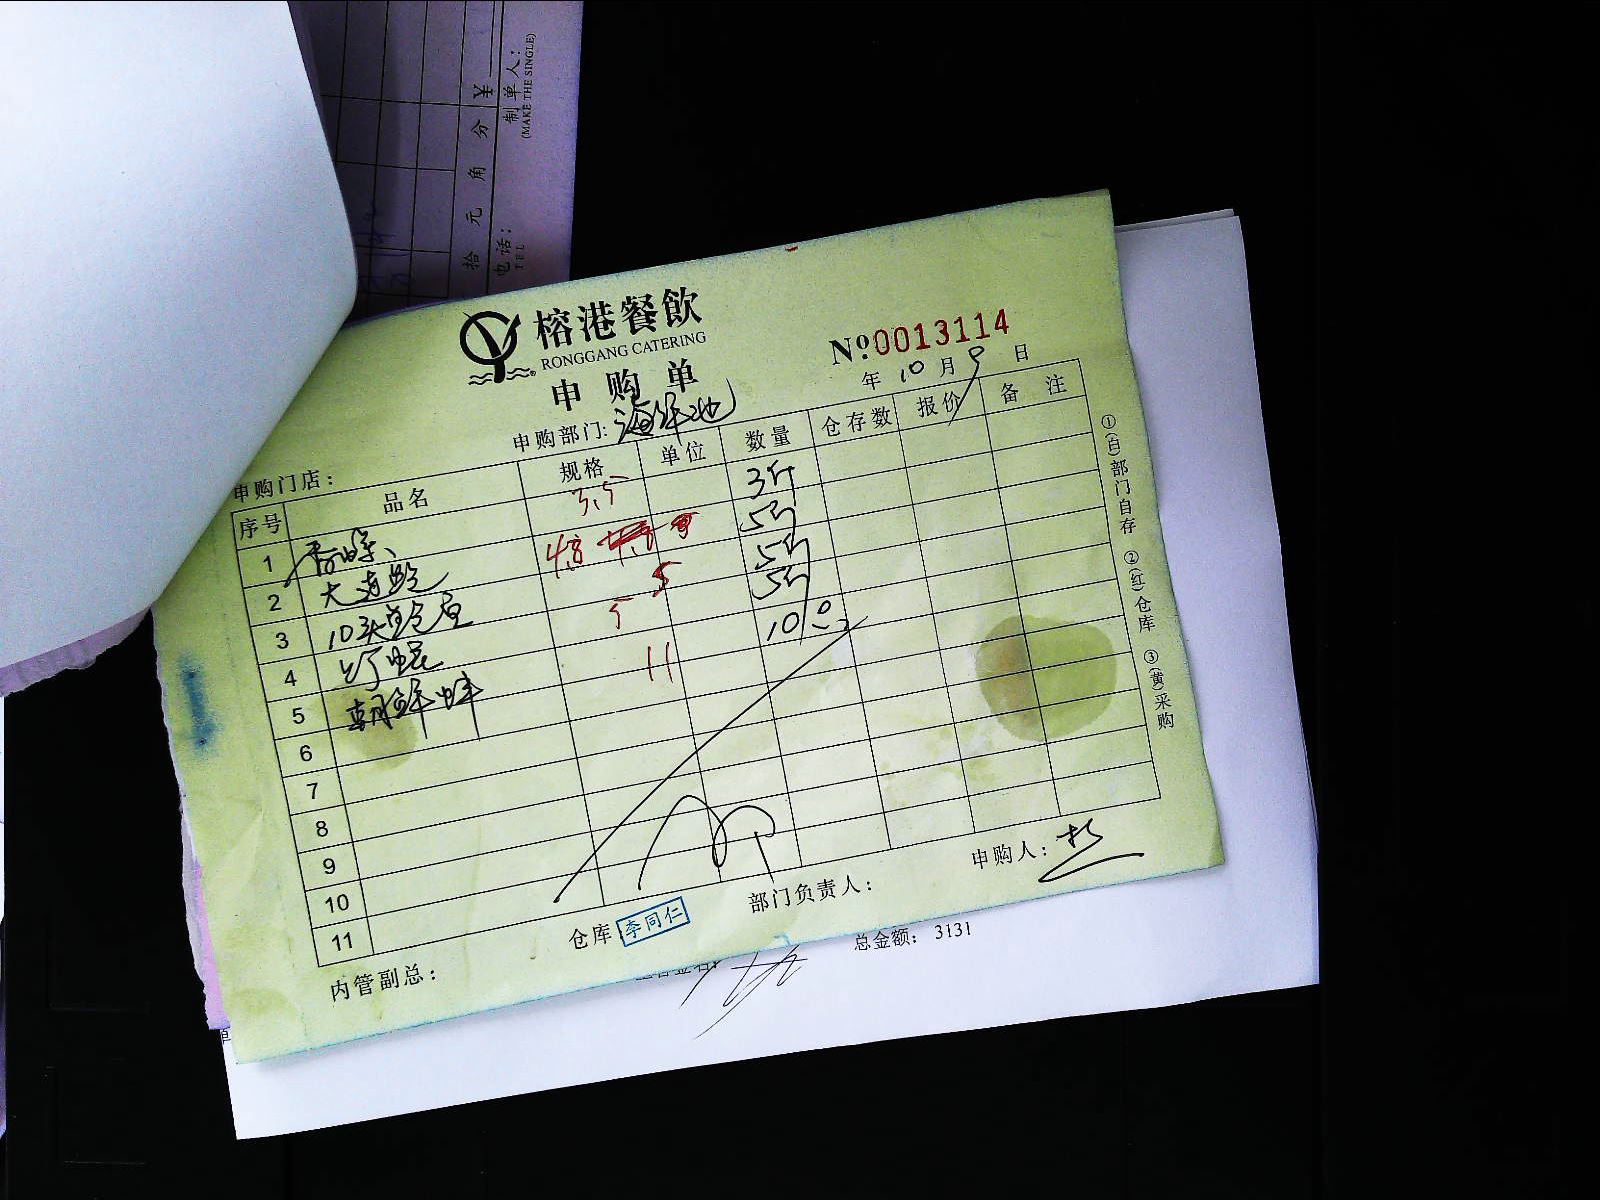 制单人：
(MAKE THE SINGLE)
拾 元 角 分 ¥
电话：
TEL
榕港餐飲
RONGGANG CATERING
申购单
№0013114
年 10 月 9 日
申购部门: 海鲜池
申购门店：
序号 品名 规格 单位 数量 仓存数 报价 备 注
1 3.5 3斤
2 大连鲍 4.8 5斤
3 10头鲍鱼 5 5斤
4 5 5斤
5 朝鲜蚌 11 10
6
7
8
9
10
11
①(白)部门自存 ②(红)仓库 ③(黄)采购
内管副总：
仓库 李同仁
部门负责人：
申购人：
总金额： 3131